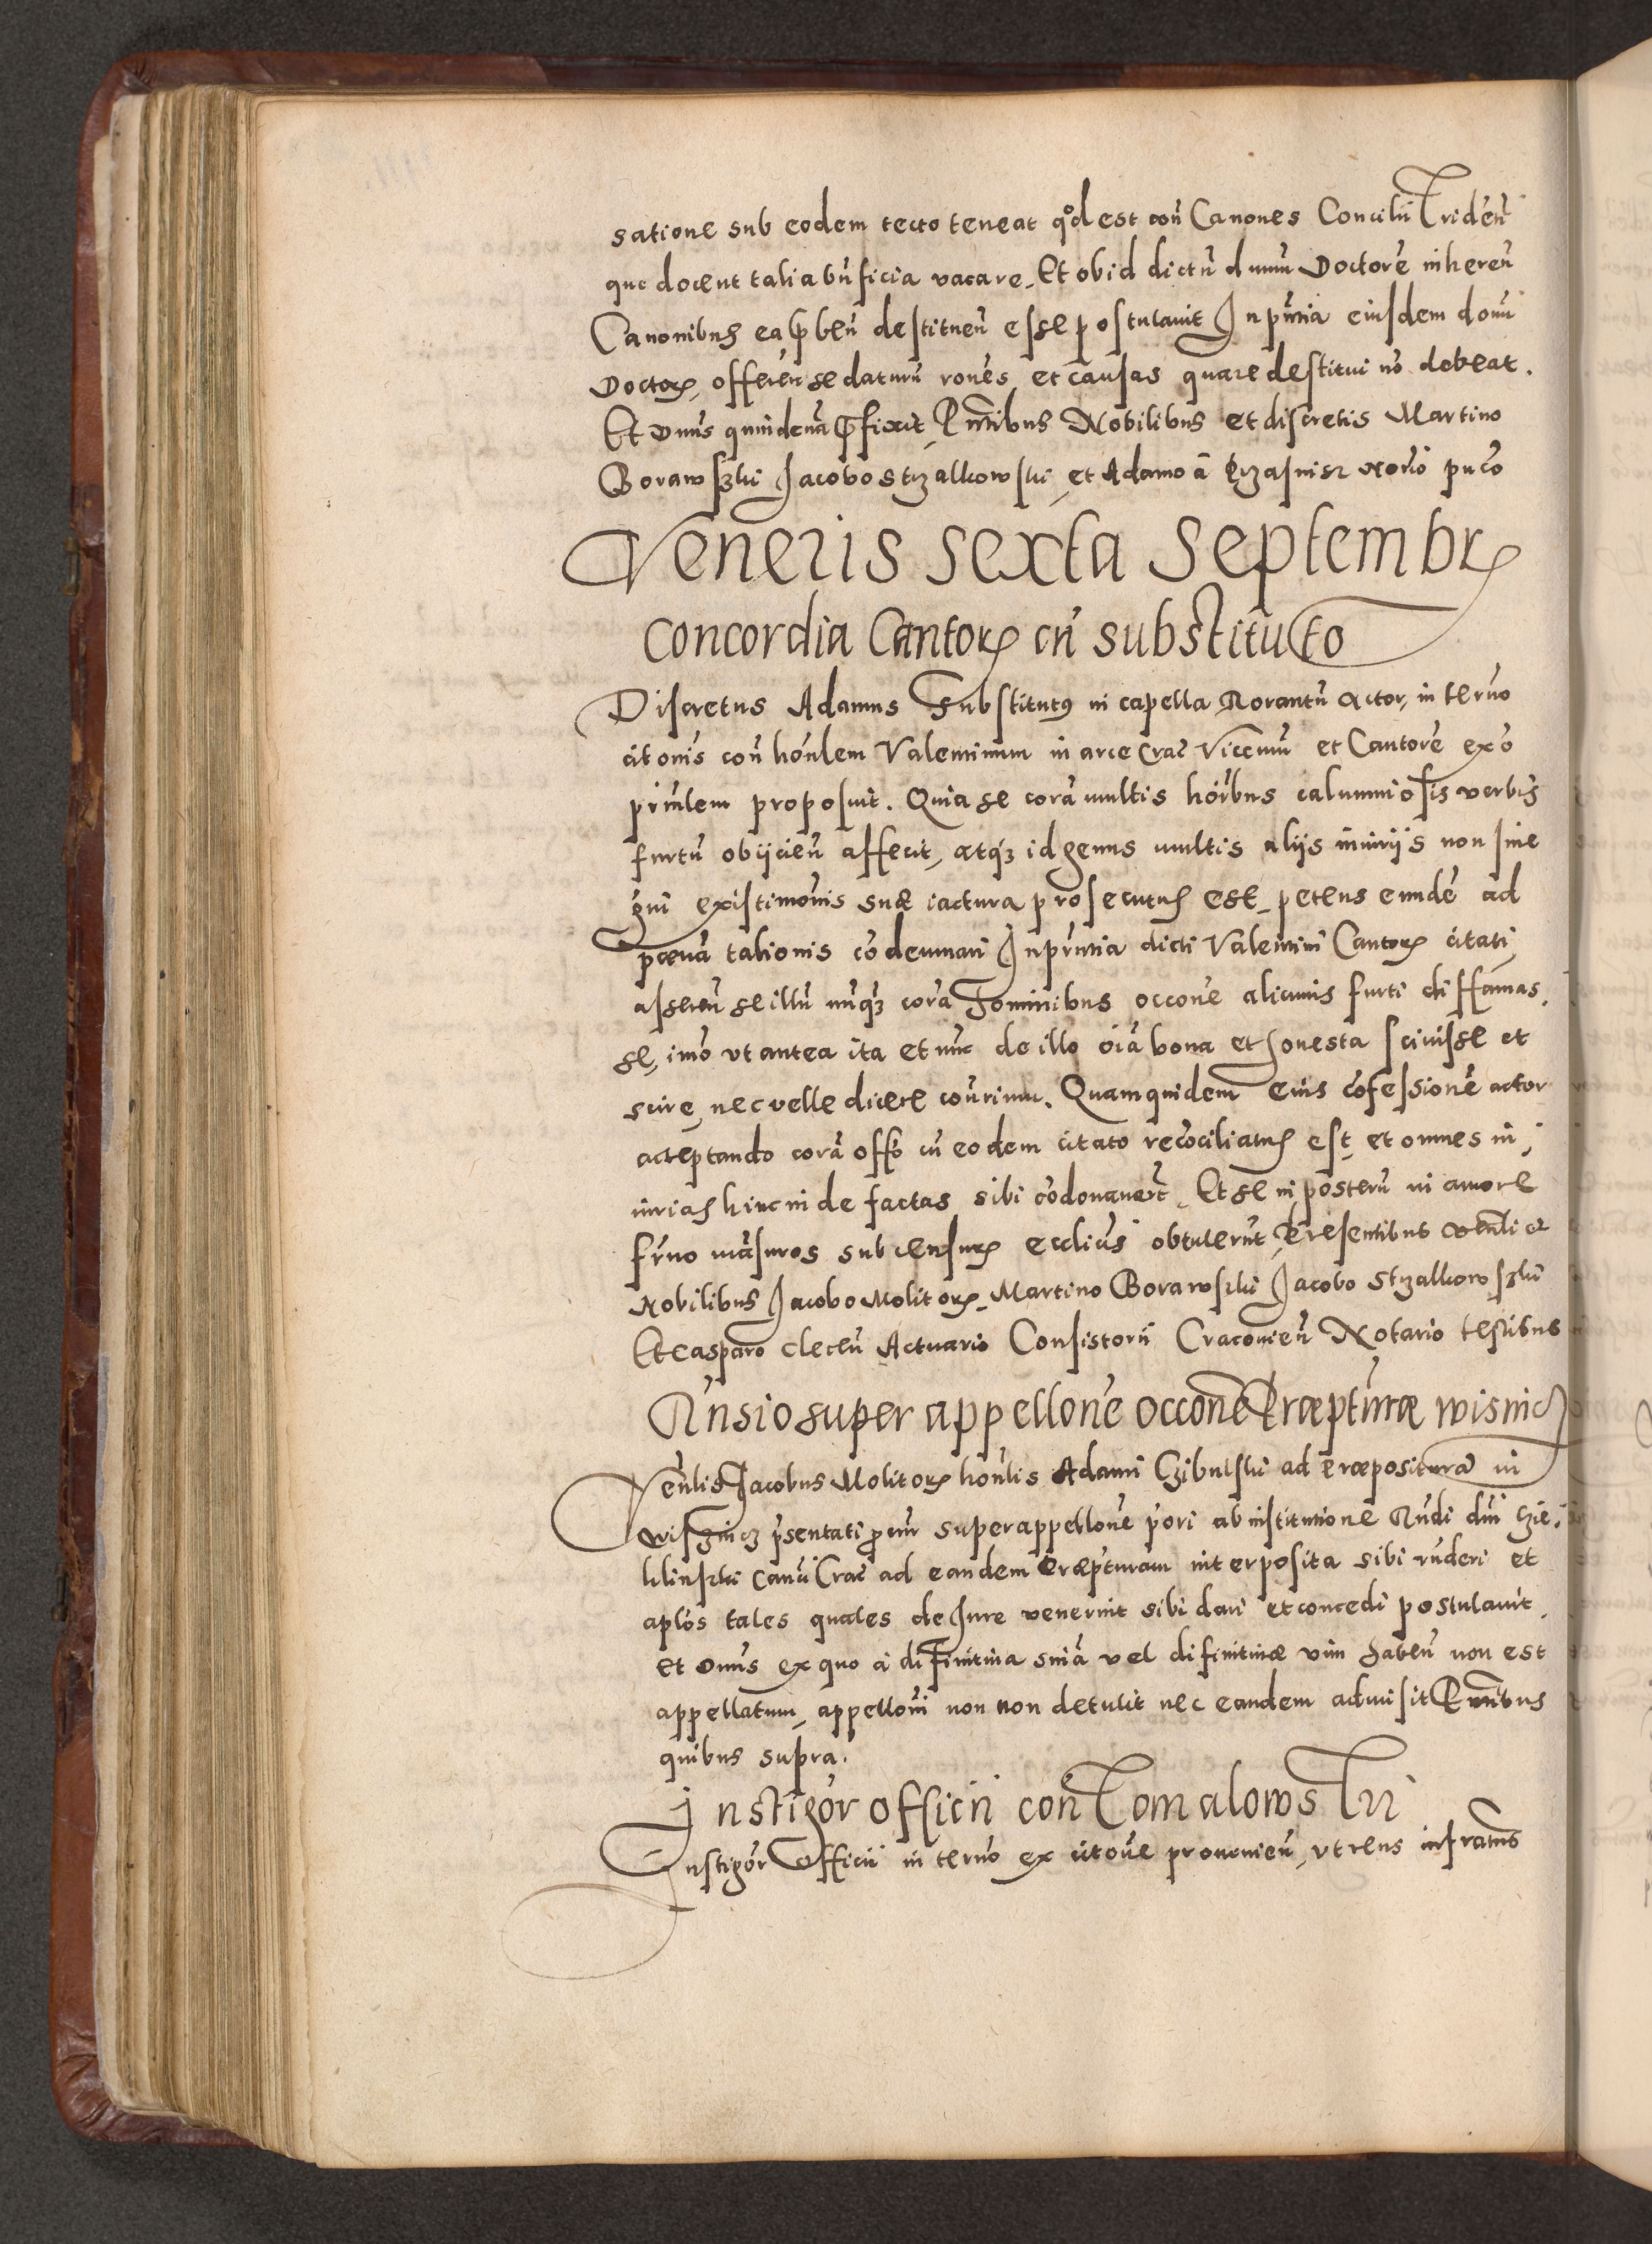 satione sub eodem tecto teneat qd est con̄ Canones Concilii Triden̄
que docent talia bn̄ficia vacare. Et ob id dictū dnum Doctorē inheren̄
Canonibus ea p̄ben̄ destituen̄ esse postulavit In pn̄tia eiusdem domi
Doctoris, offeren̄ se daturū rōnes, et causas quare destitui nō debeat.
Et Dnūs quindenā p̄fixit, Pn̄tibus Nobilibus et discretis Martino
Borawszki Jacobo strzalkowski, et Adamo ā Krzasnisz Notō puco
Veneris sexta Septembris
Concordia Cantoris cū substituto
Discretus Adamus Substitutus in capella Rorantū Actor, in termo
citonis con̄ honlem Valentinum in arce Crac̄ Vicemū et Cantorē ex ō
primlem proposuit. Quia se corā multis hoībus calumniosis verbis
furtū obijcien̄ affecit, atq3 id genus multis alijs iniurijs non sine
gui existimonis suæ iactura prosecutus est, petens eundē ad
pœnā talionis cōdemnari In pn̄tia dicti Valentini Cantoris citati,
asseren̄ se illū nūq3 corā hominibus occone alicuius furti diffamas,
se, imō ut antea ita et nūc de illo oīa bona et honesta scivisse et
scire, nec velle dicere con̄rium. Quam quidem eius cōfessionē actor
acceptando corā offō cū eodem citato recōciliatus est, et omnes in,
iurias hinc inde factas sibi cōdonaverūt. Et se in posterū in amore
frn̄o māsuros sub censuris ecclīcis obtulerūt, Presentibus venli et
Nobilibus Jacobo Molitoris, Martino Borawski Jacobo Strzalkowszki
Et casparo clecen̄ Actuario Consistorii Cracovien̄ Notario testibus
Rn̄sio super appellonē occone Præptūræ wisnic
Venlis Jacobus Molitoris honlis Adami Czibulski ad Præposituram in
wisznicz pn̄sentati procur super appellone p̄ori ab institutione Rūdi dni Zie,
klinszki Can̄ci Crac̄ ad eandem Præpturam interposita sibi rn̄deri et
aplōs tales quales de Jure venerint sibi dari et concedi postulavit,
Et Dnūs ex quo ā difinitiva sniā vel difinitivæ vim haben̄ non est
appellatum, appelloni non non detulit nec eandem admisit Pn̄tibus
quibus supra.
Instigor officii con̄ Tomalowski
Instigor Officii in termo ex citone provenien̄, ut reus infratus